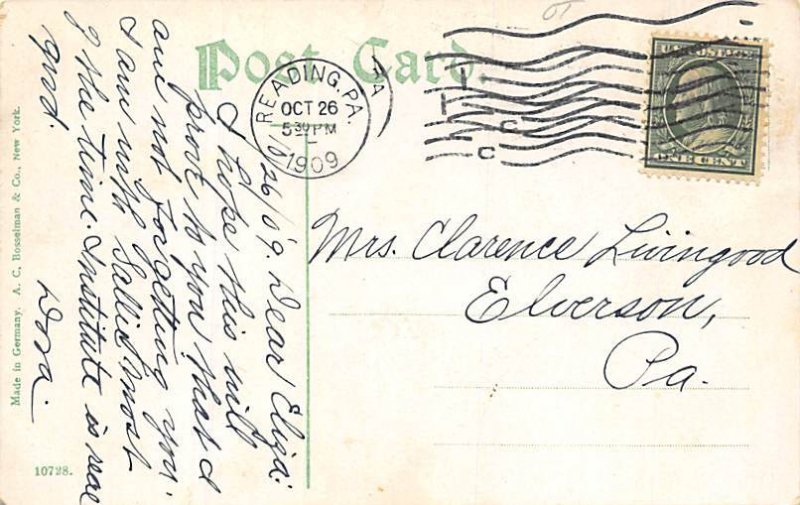 Post Card.
READING, PA.
OCT 26
5 30 PM
1909
U.S. POSTAGE
ONE CENT
10/26/09. Dear Eliza:
I hope this will
prove to you that I
am not forgetting you.
I am with Sallie most
of the time. Institute is real
good.
Dora.
Mrs. Clarence Livingood
Elverson,
Pa.
Made in Germany. A. C. Bosselman & Co., New York.
10728.